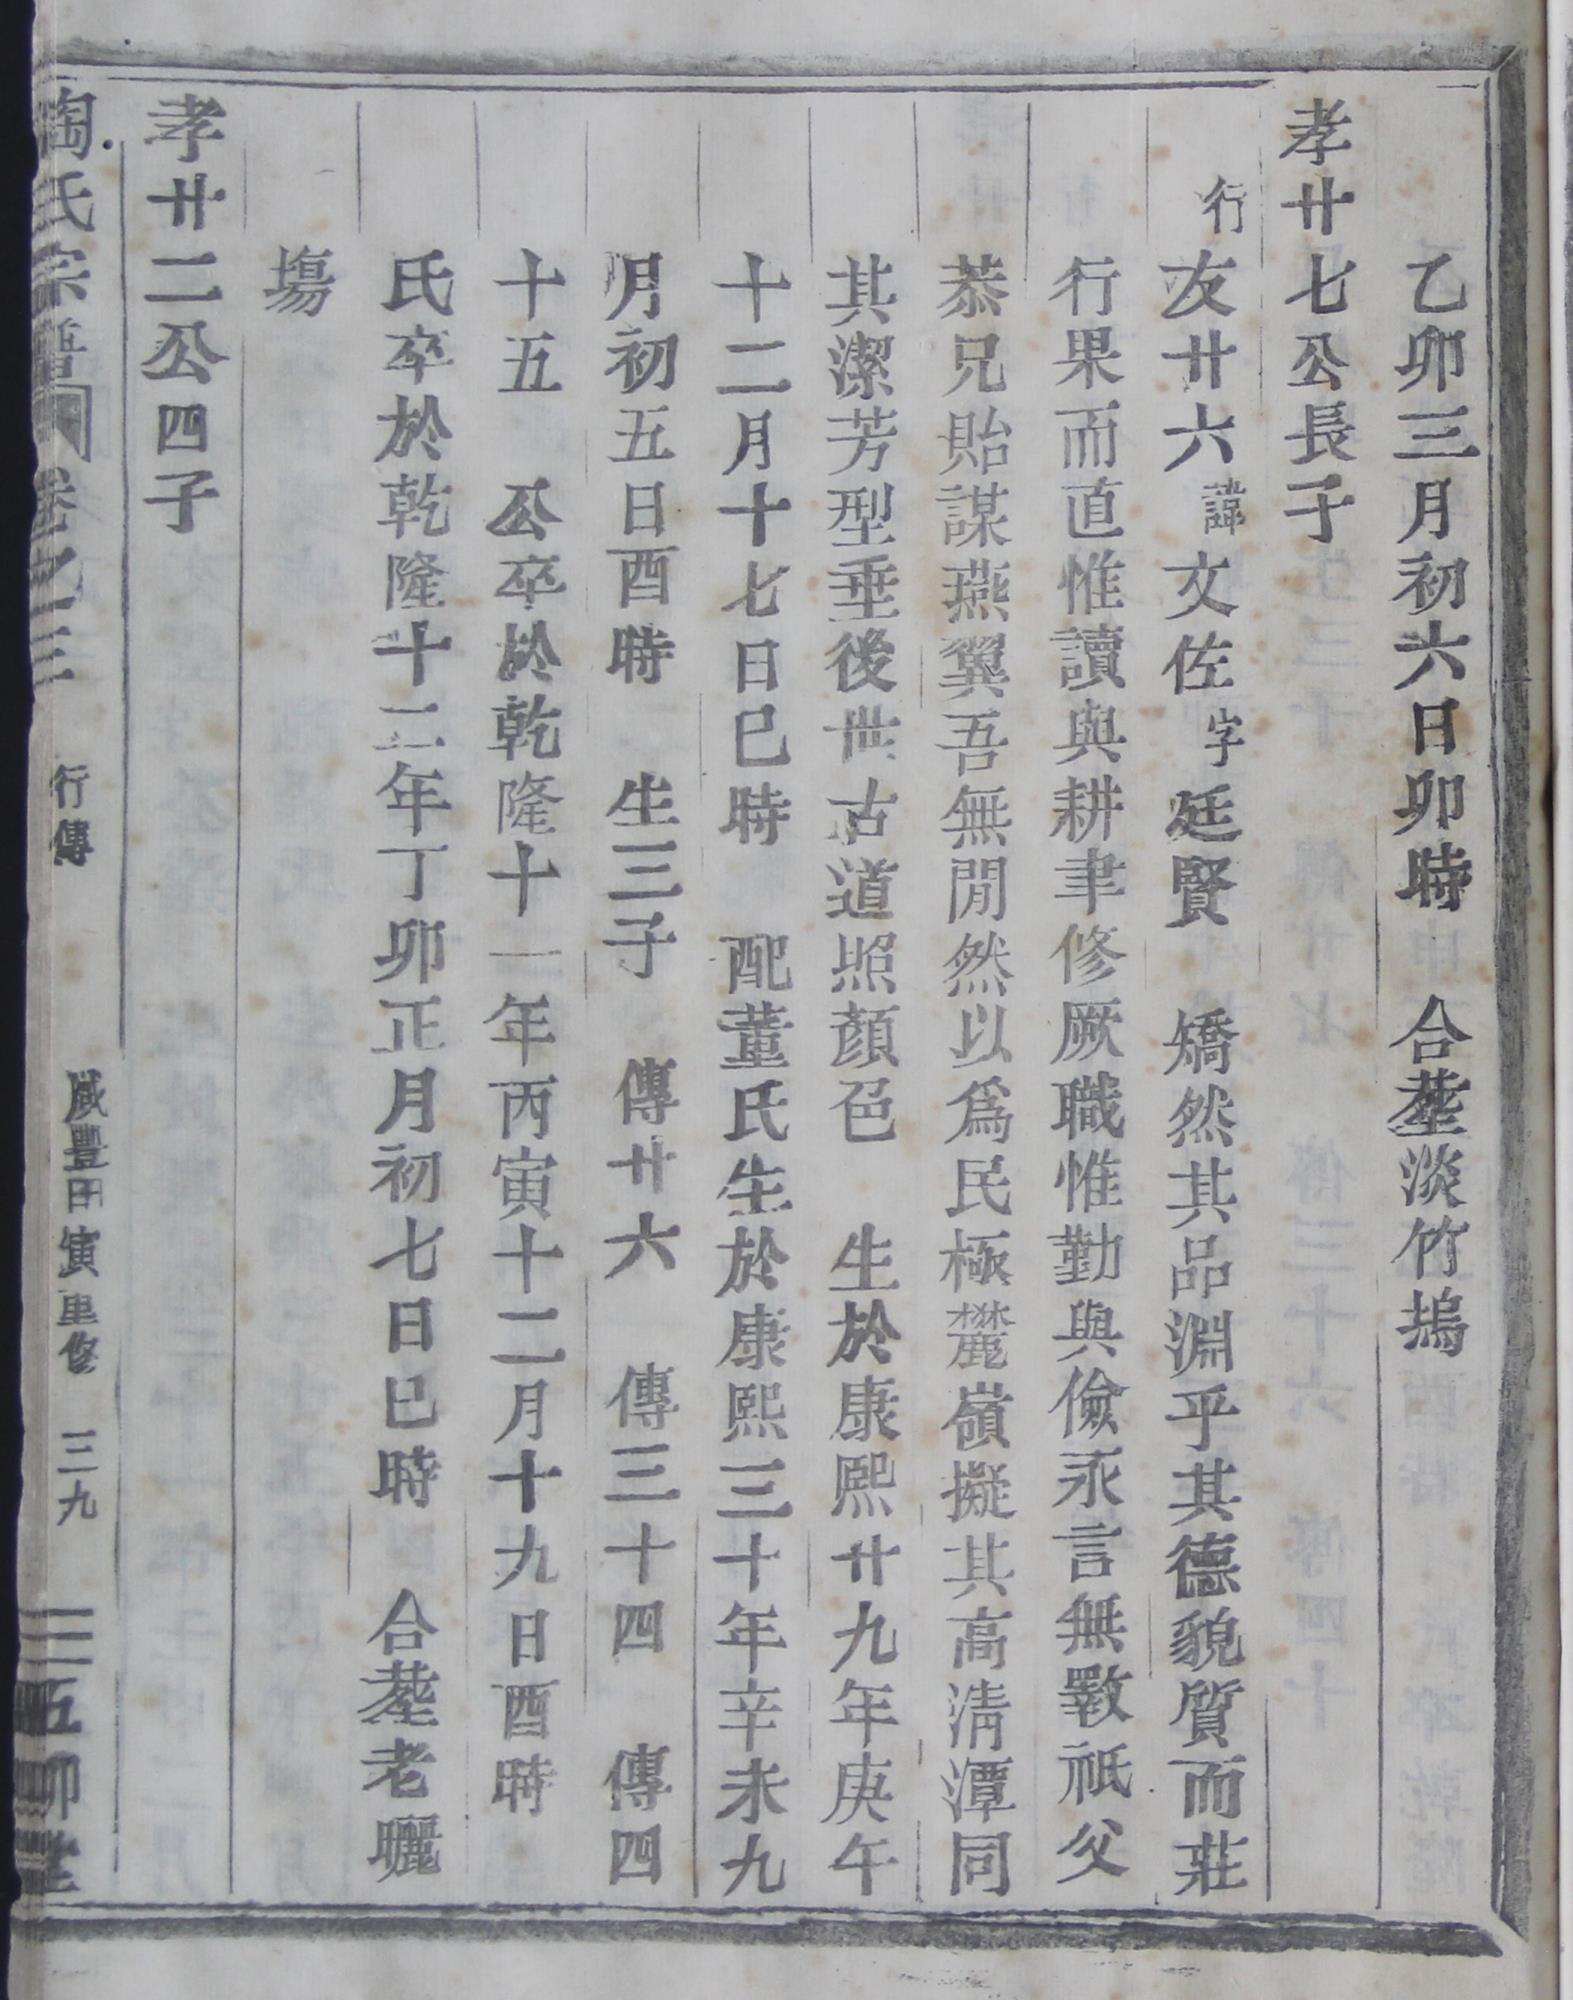 乙卯三月初六日卯時　合塟淡竹塢
孝廿七公長子
行友廿六諱文佐字廷賢　矯然其品淵乎其德貌質而莊
行果而直惟讀與耕聿修厥職惟勤與儉永言無斁祇父
恭兄貽謀燕翼吾無閒然以爲民極麓嶺擬其高清潭同
其潔芳型垂後世古道照顏色　生於康熙廿九年庚午
十二月十七日巳時　配董氏生於康熙三十年辛未九
月初五日酉時　生三子　傳廿六　傳三十四　傳四
十五　公卒於乾隆十一年丙寅十二月十九日酉時
氏卒於乾隆十二年丁卯正月初七日巳時　合塟老曬
塲
孝廿二公四子
陶氏宗譜　卷之三　行傳　咸豐甲寅重修　三九　五柳堂